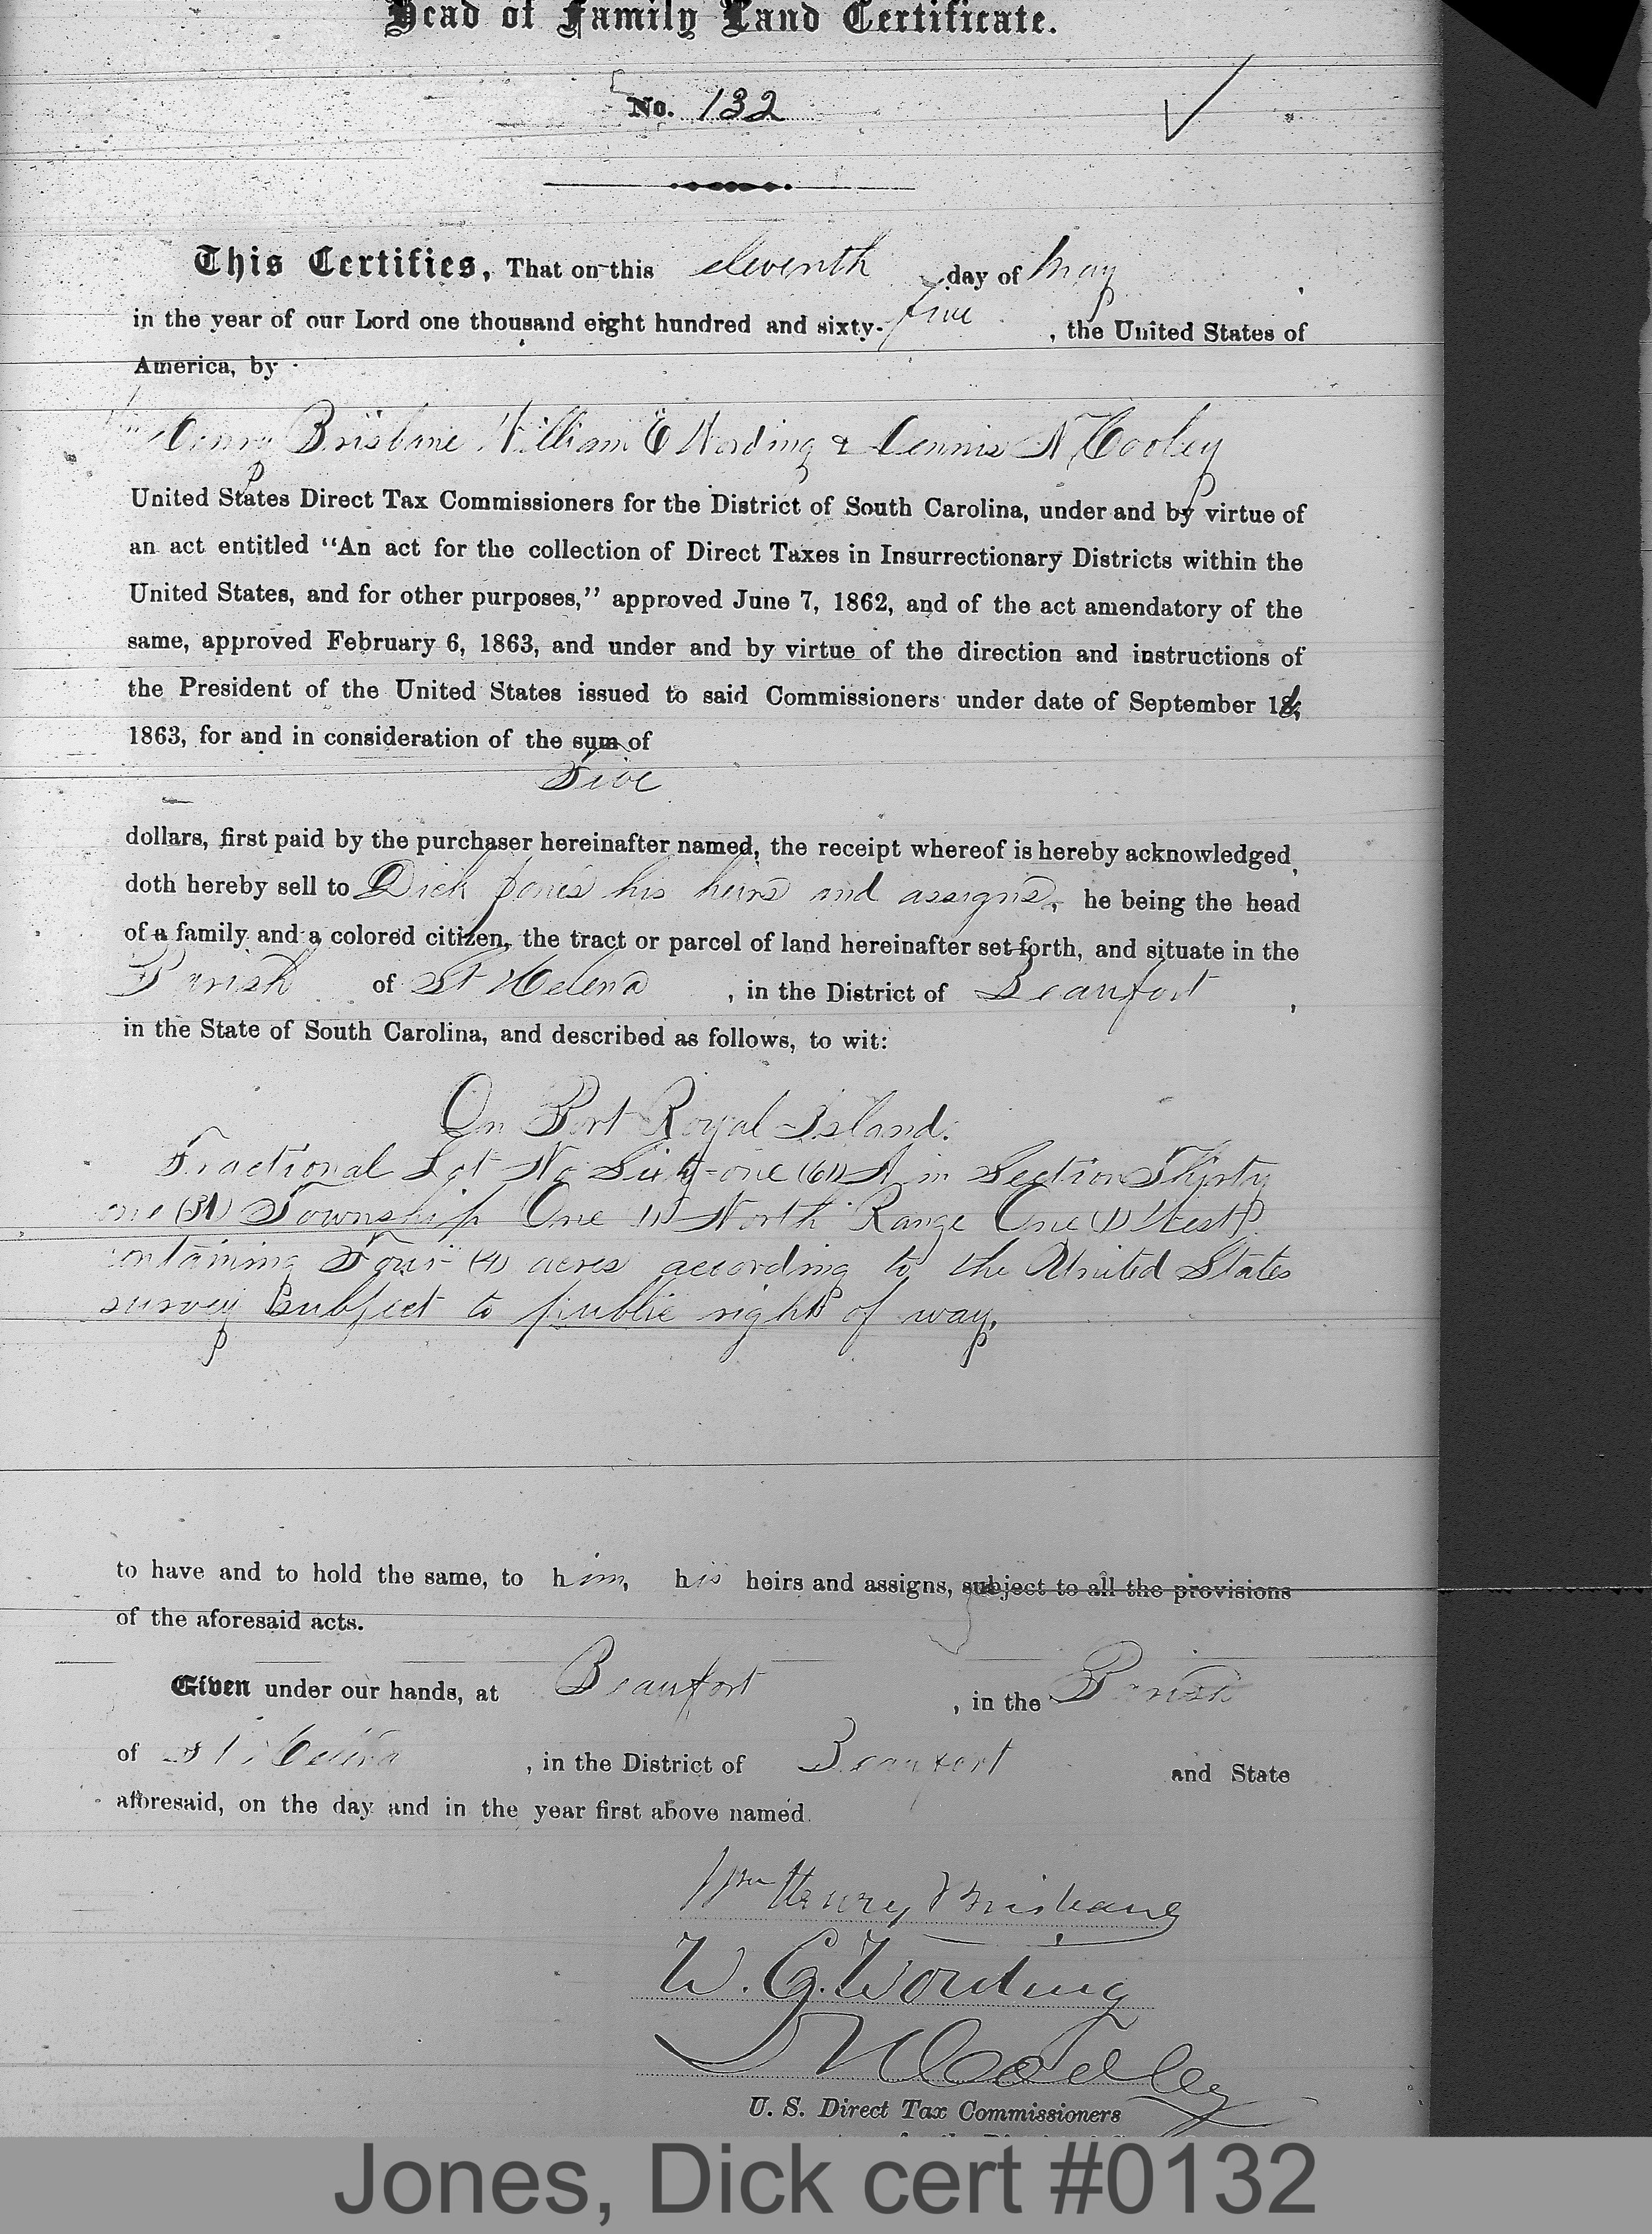 Head of Family Land Certificate.
No. 132
This Certifies, That on this eleventh day of May,
in the year of our Lord one thousand eight hundred and sixty-five, the United States of
America, by
Wm Henry Brisbane William E Wording & Dennis N Cooley
United States Direct Tax Commissioners for the District of South Carolina, under and by virtue of
an act entitled "An act for the collection of Direct Taxes in Insurrectionary Districts within the
United States, and for other purposes," approved June 7, 1862, and of the act amendatory of the
same, approved February 6, 1863, and under and by virtue of the direction and instructions of
the President of the United States issued to said Commissioners under date of September
1863, for and in consideration of the sum of
Five
dollars, first paid by the purchaser hereinafter named, the receipt whereof is hereby acknowledged,
doth hereby sell to Dick Jones his heirs and assigns, he being the head
of a family and a colored citizen, the tract or parcel of land hereinafter set forth, and situate in the
Parish of St Helena, in the District of Beaufort,
in the State of South Carolina, and described as follows, to wit:
On Port Royal Island.
Fractional Lot No Sixty-one (61) A in Section Thirty
one (31) Township One (1) North Range One (1) West
containing Four (4) acres according to the United States
survey subject to public right of way.
to have and to hold the same, to him, his heirs and assigns, subject to all the provisions
of the aforesaid acts.
Given under our hands, at Beaufort, in the Parish
of St Helena, in the District of Beaufort and State
aforesaid, on the day and in the year first above named.
Wm Henry Brisbane
W. E. Wording
D N Cooley
U. S. Direct Tax Commissioners
Jones, Dick cert #0132